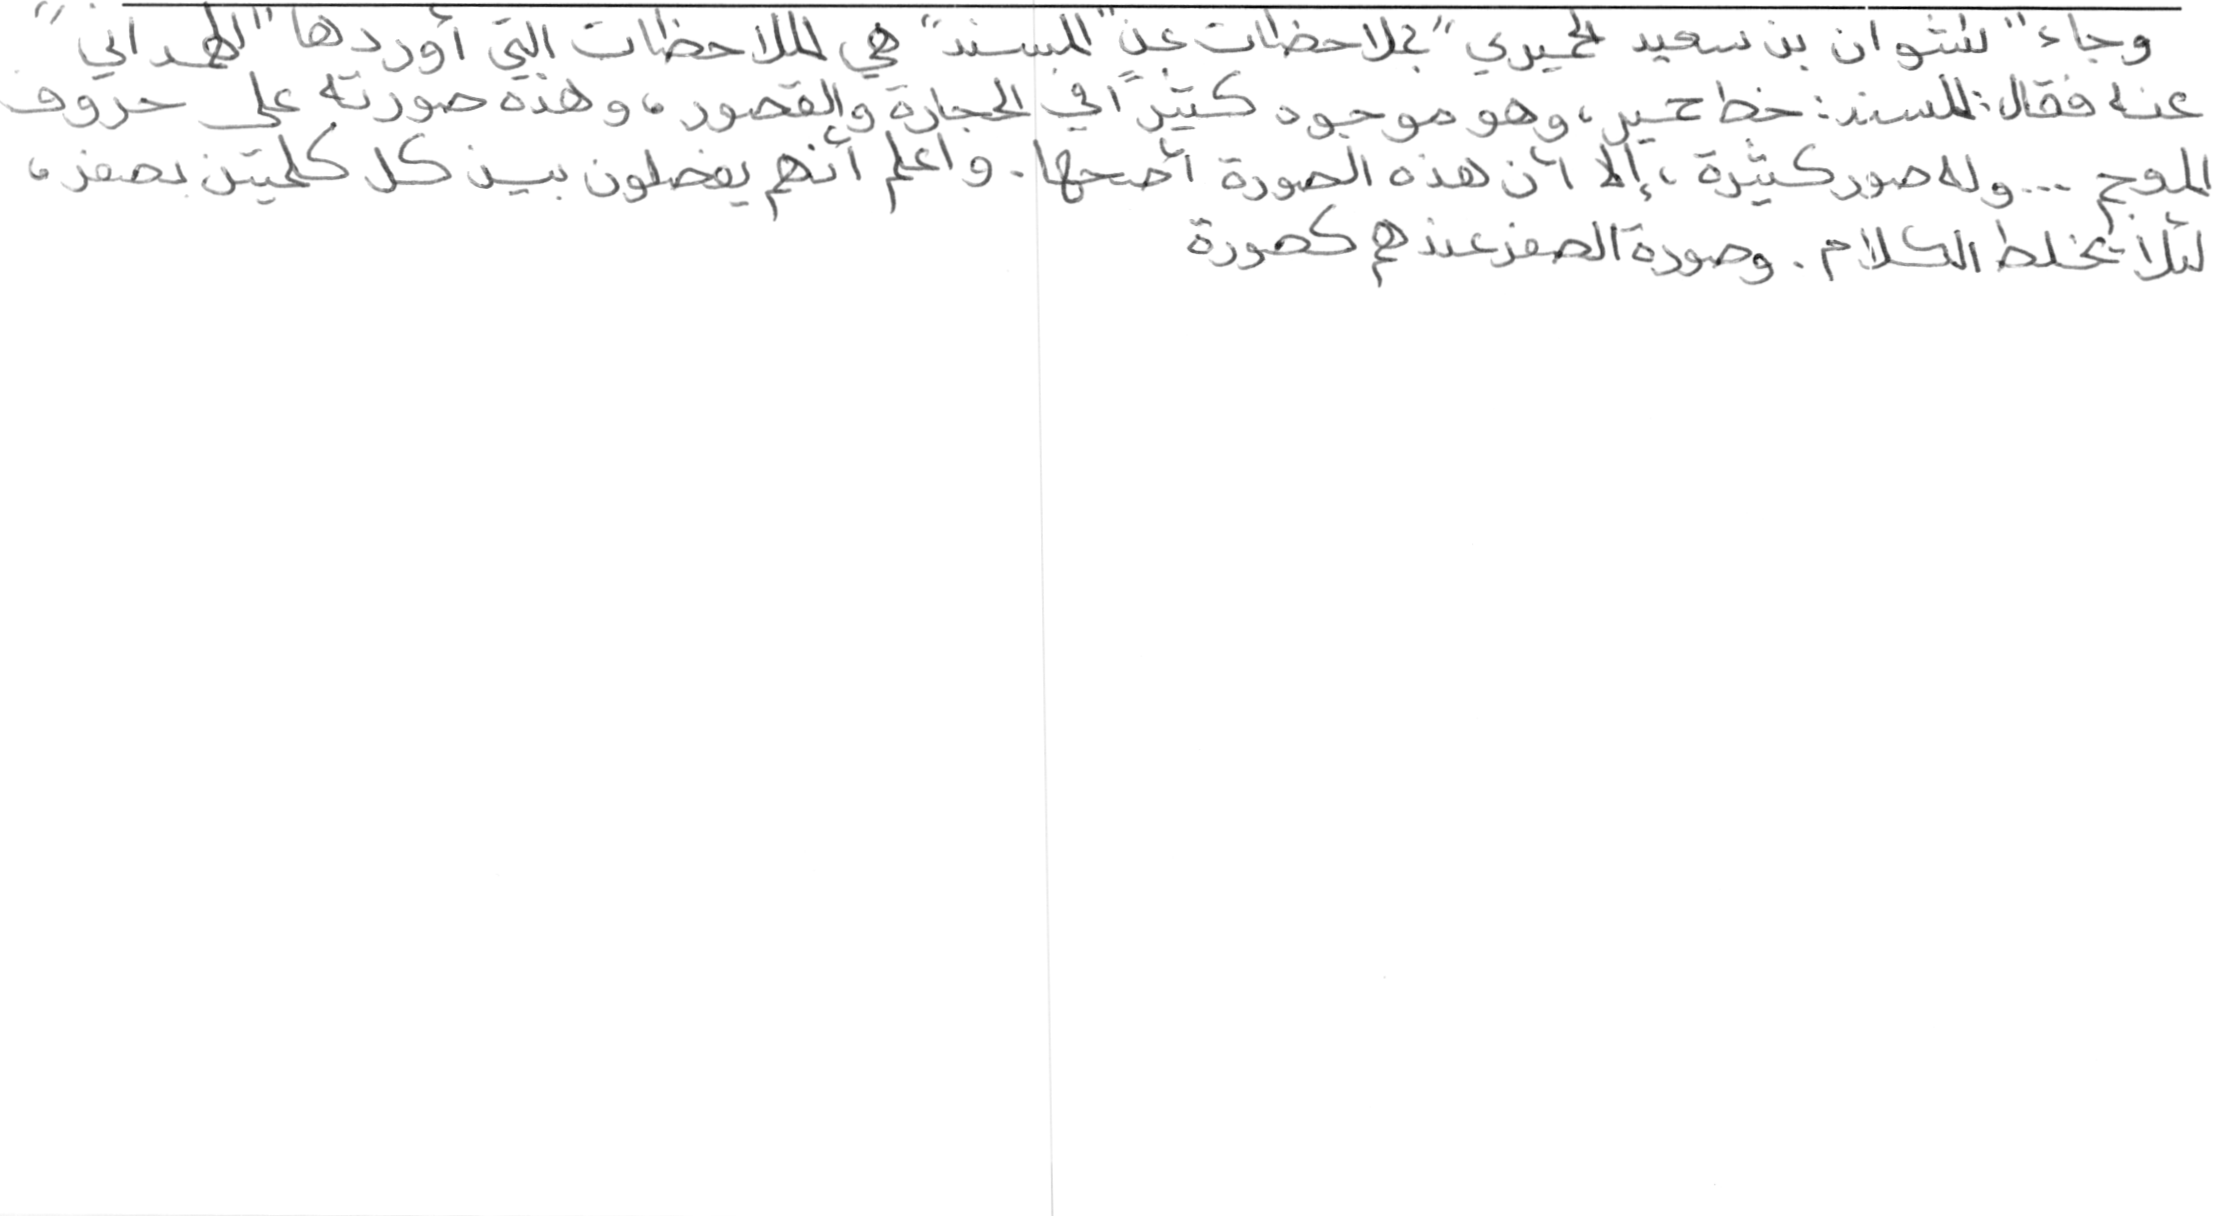 وجاء "نشوان بن سعيد الحميري" بملاحظات عن "المسند" هي الملاحظات التي أوردها "الهمداني"
عنه فقال: المسند: خط حمير، وهو موجود كثيرًا في الحجارة والقصور، وهذه صورته على حروف
المعجم ... وله صور كثيرة، إلا أن هذه الصورة أصحها. واعلم أنهم يفصلون بين كل كلمتين بصفر،
لئلا يختلط الكلام. وصورة الصفر عندهم كصورة